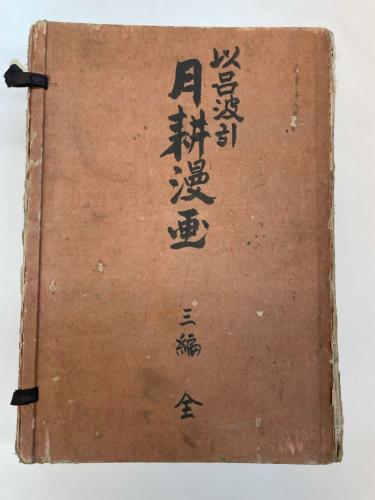 以呂波引
月耕漫画
三編 全